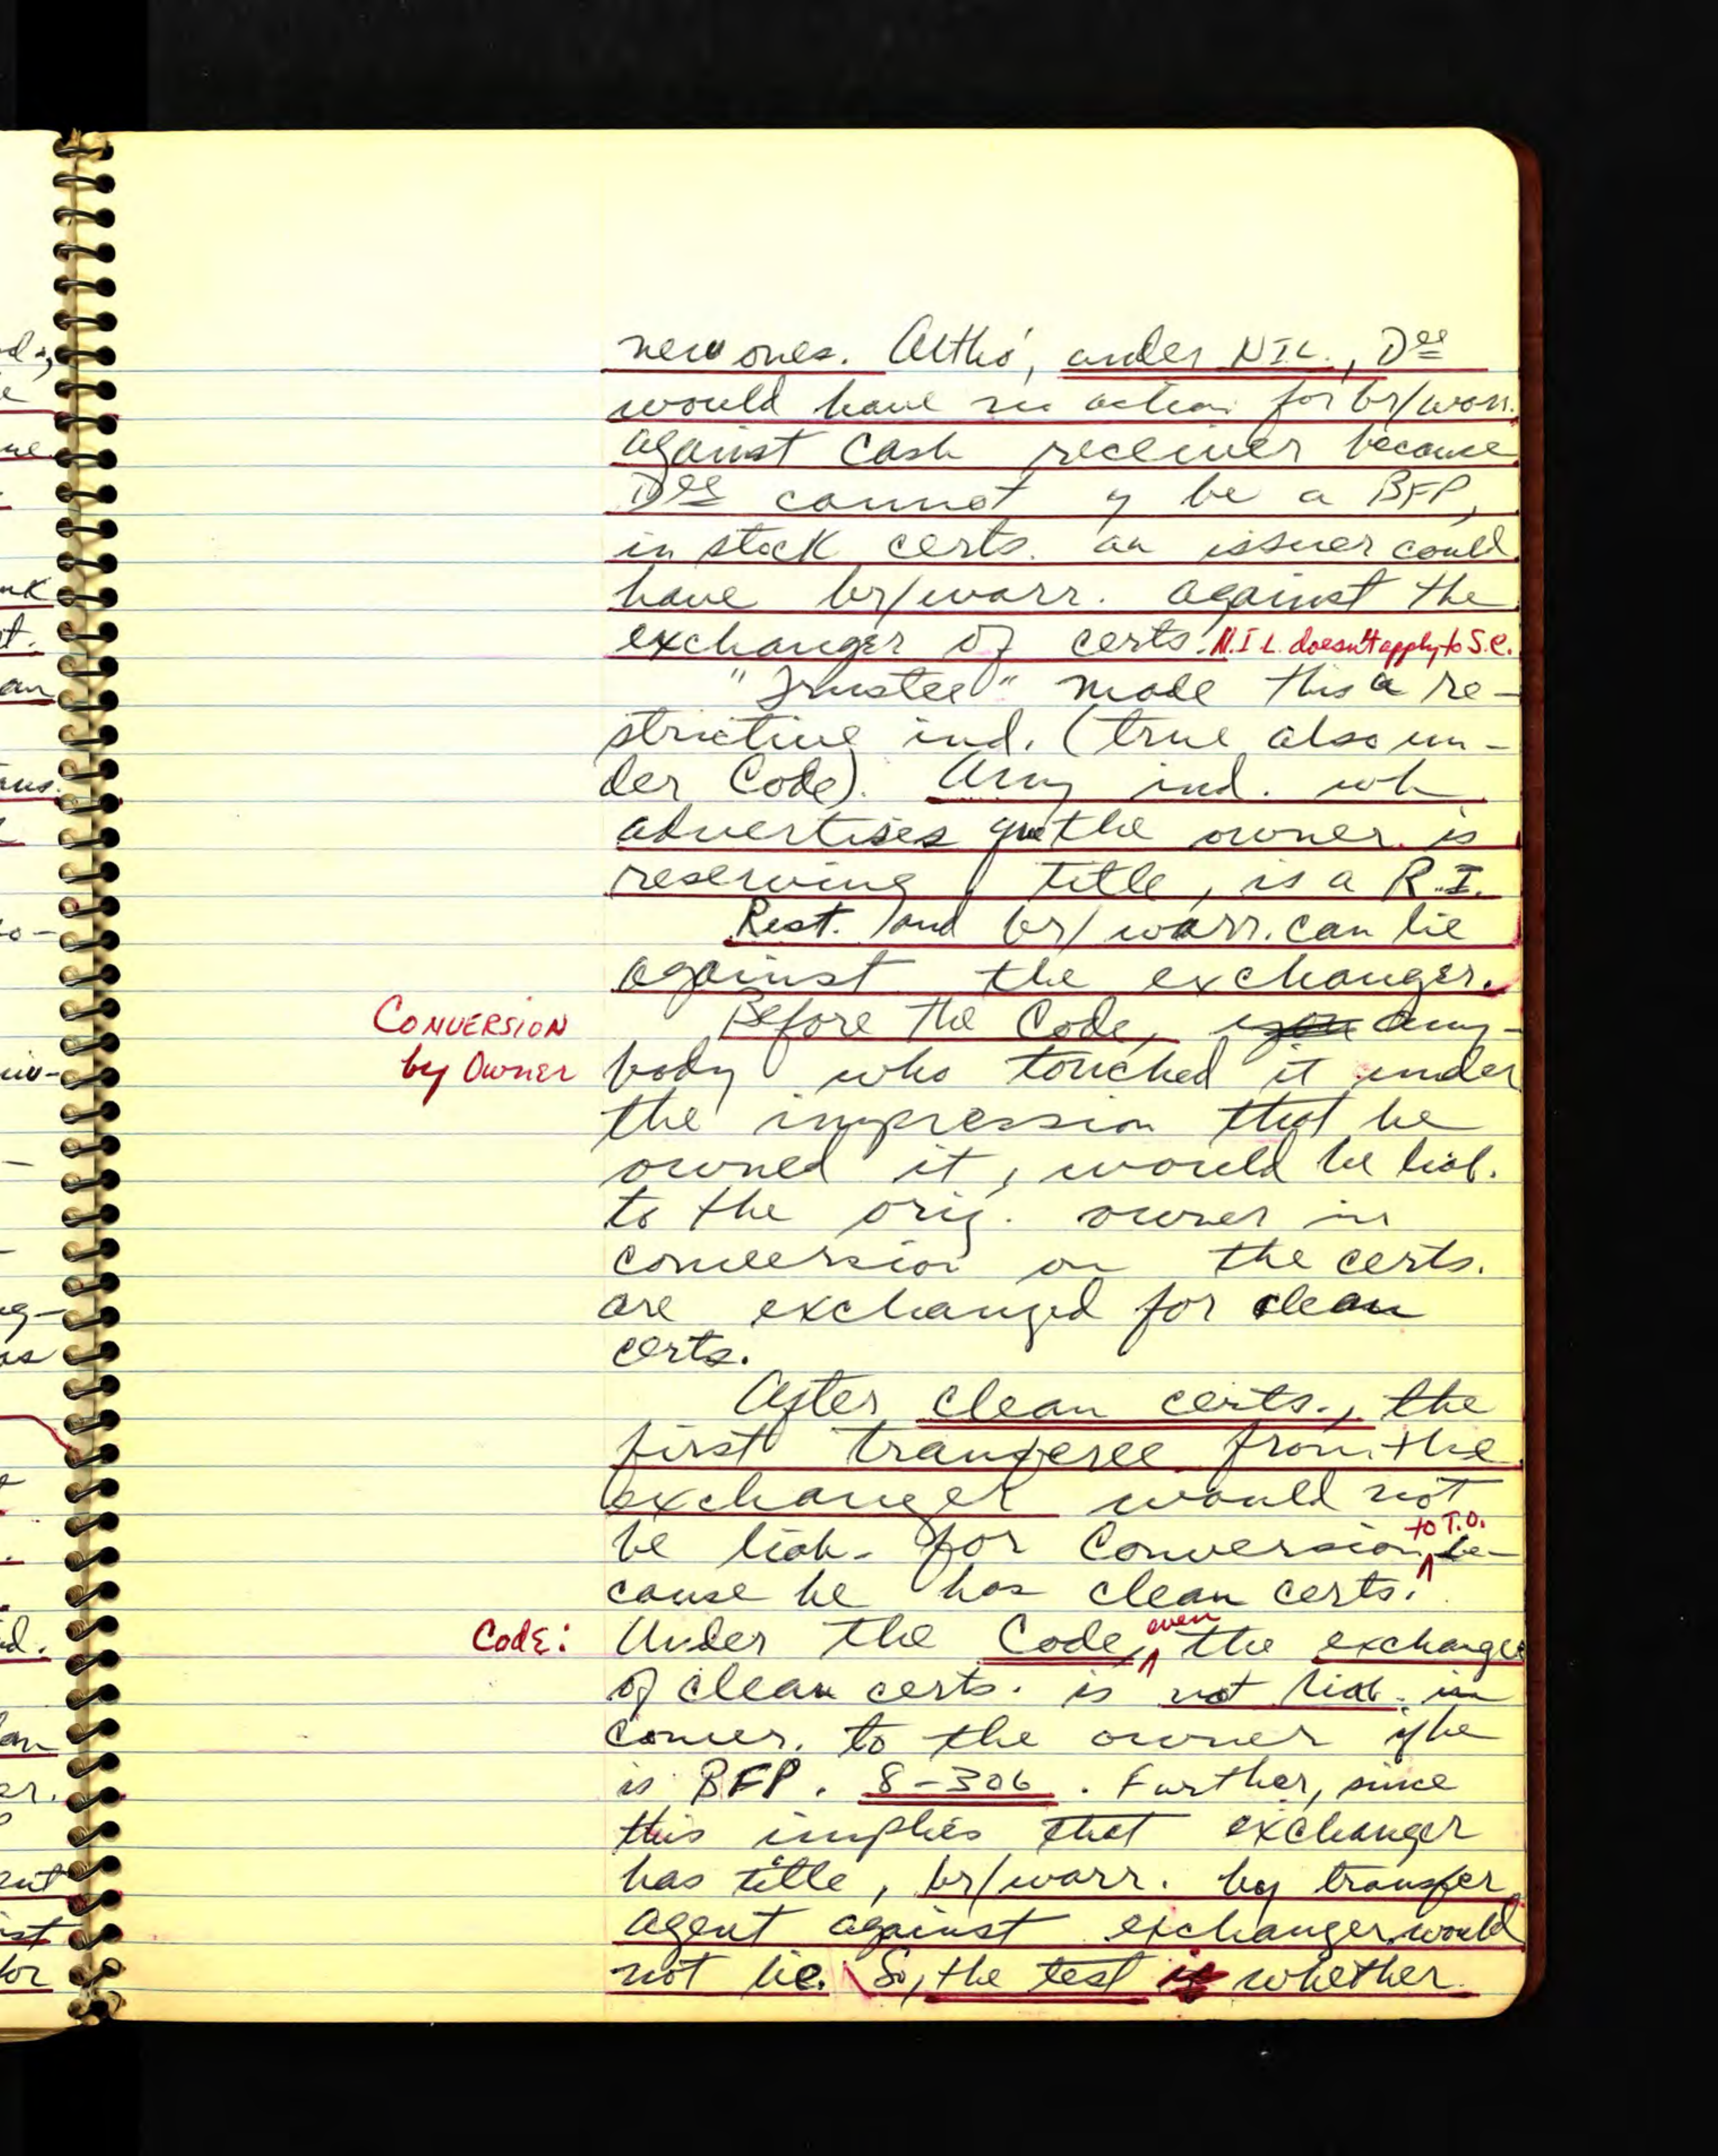 new ones. Altho', under N.I.L., Dee
would have no action for br/warr.
against cash receiver because
Dee cannot be a BFP,
in stock certs. an issuer could
have br/warr. against the
exchanger of certs. N.I.L. doesn't apply to S.C.
"Trustee" made this a re-
strictive ind. (true also un-
der Code). Any ind. wh
advertises the owner is
reserving title, is a R.I.
Rest. and br/warr. can lie
against the exchanger.
CONVERSION
by OWNER
Before the Code, any-
body who touched it under
the impression that he
owned it, would be liab.
to the orig. owner in
conversion on the certs.
are exchanged for clean
certs.
After clean certs., the
first tranferee from the
exchanger would not
be liab. for Conversion to T.O. be-
cause he has clean certs.
CODE:
Under the Code, even the exchanger
of clean certs. is not liab. in
conver. to the owner if he
is BFP. 8-306. Further, since
this implies that exchanger
has title, br/warr. by transfer
agent against exchanger would
not lie. So, the test is whether